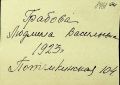 Грабова
Людмила Васильевна
1923,
Потемкинская 104